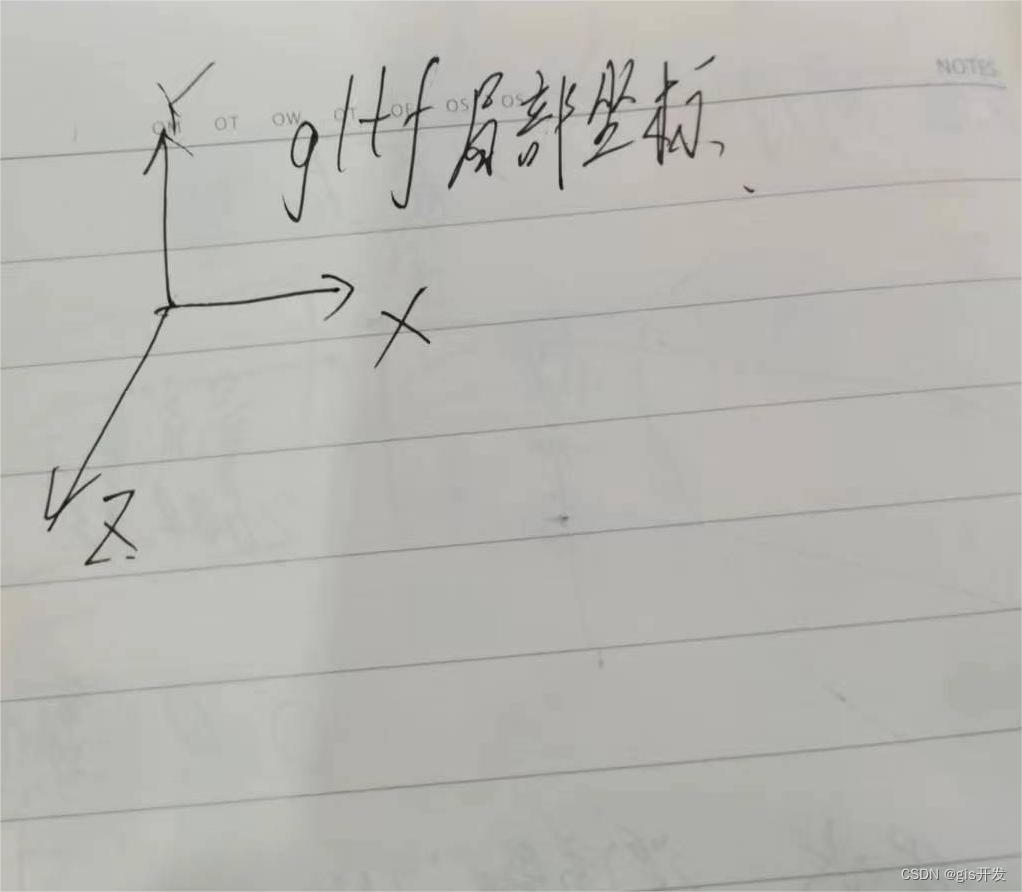 NOTES
OT OW OT OF OS OS
Y
gltf局部坐标
X
Z
CSDN @gis开发